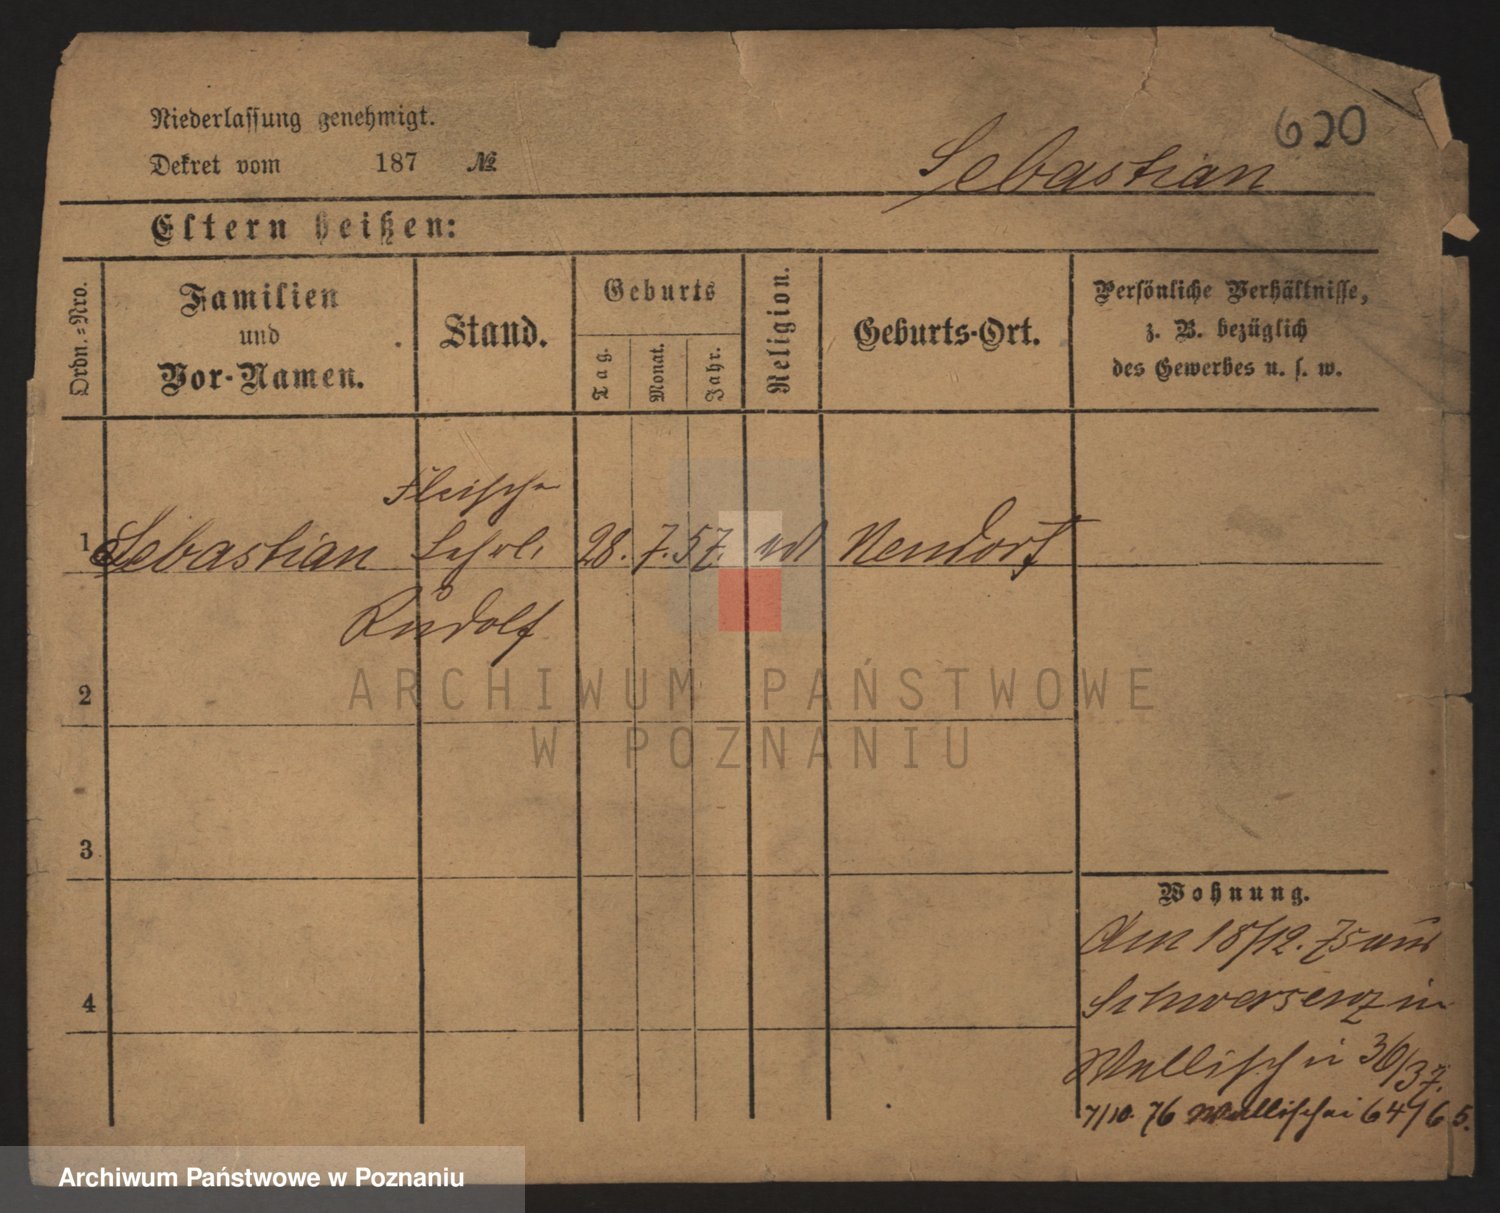 Niederlassung genehmigt.
620
Dekret vom 187 №
Sebastian
Eltern heißen:
Ordn.-Nro.
Familien
und
Vor-Namen.
Stand.
Geburts
Tag.
Monat.
Jahr.
Religion.
Geburts-Ort.
Persönliche Verhältnisse,
z. B. bezüglich
des Gewerbes u. s. w.
Fleischer
1 Sebastian Lehrl. 28. 7. 57. Neudorf
Rudolf
2
3
4
Wohnung.
Am 18/12. 75 aus
Schwersenz in
Wallischei 36/37.
7/10. 76 Wallischei 64/65.
ARCHIWUM PAŃSTWOWE
W POZNANIU
Archiwum Państwowe w Poznaniu